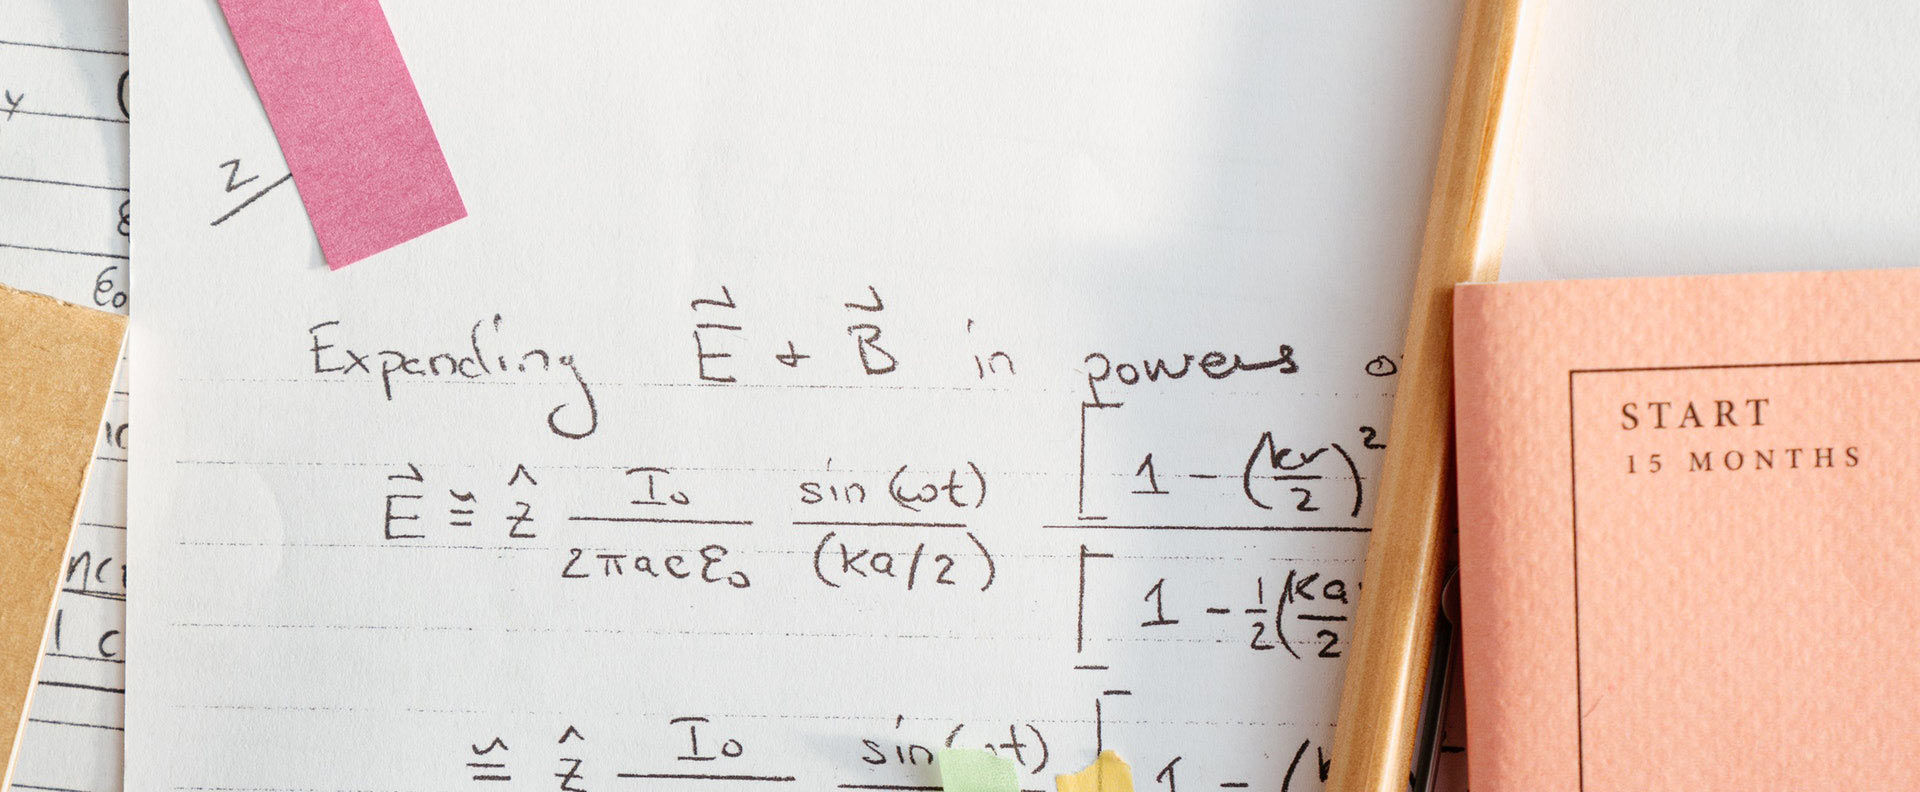 y
2
ε₀
Expanding E⃗ + B⃗ in powers
E⃗ ≅ ẑ I₀ / 2πacε₀ sin(ωt) / (ka/2) [1 - (kr/2)² / [1 - 1/2 (ka/2
≅ ẑ I₀ sin( t) [1 - (k
START
15 MONTHS